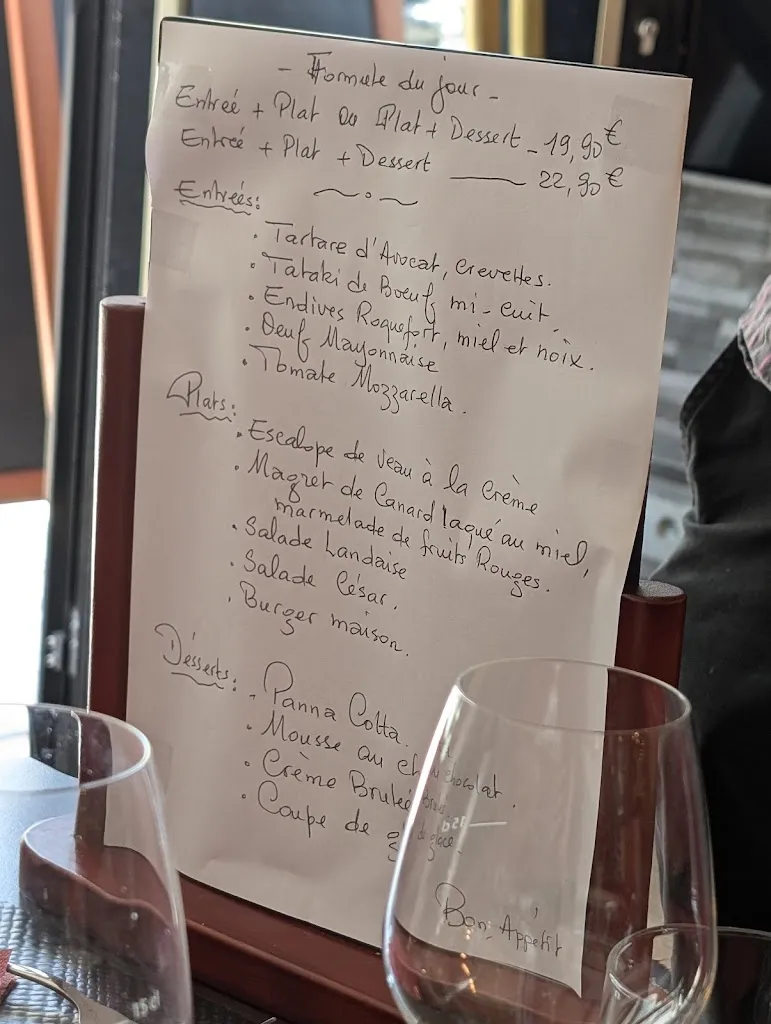 - Formule du jour -
Entreé + Plat ou Plat + Dessert - 19,90€
Entreé + Plat + Dessert —— 22,90€
Entreés:
. Tartare d'Avocat, crevettes.
. Tataki de Boeuf mi-cuit.
. Endives Roquefort, miel et noix.
. Oeuf Mayonnaise
. Tomate Mozzarella.
Plats:
. Escalope de veau à la Crème
. Magret de Canard laqué au miel,
marmelade de fruits Rouges.
. Salade Landaise
. Salade César.
. Burger maison.
Désserts:
- Panna Cotta.
. Mousse au chocolat.
. Crème Brulée
. Coupe de glace.
Bon Appétit
15cl